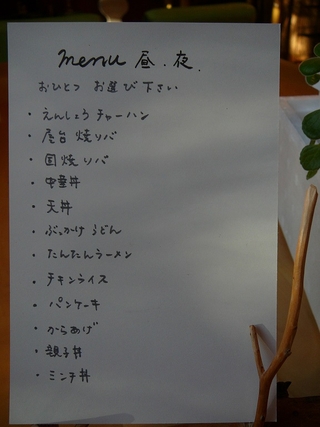 menu 昼.夜.
おひとつ お選び下さい
・えんしょうチャーハン
・屋台焼ソバ
・固焼ソバ
・中華丼
・天丼
・ぶっかけうどん
・たんたんラーメン
・チキンライス
・パンケーキ
・からあげ
・親子丼
・ミンチ丼